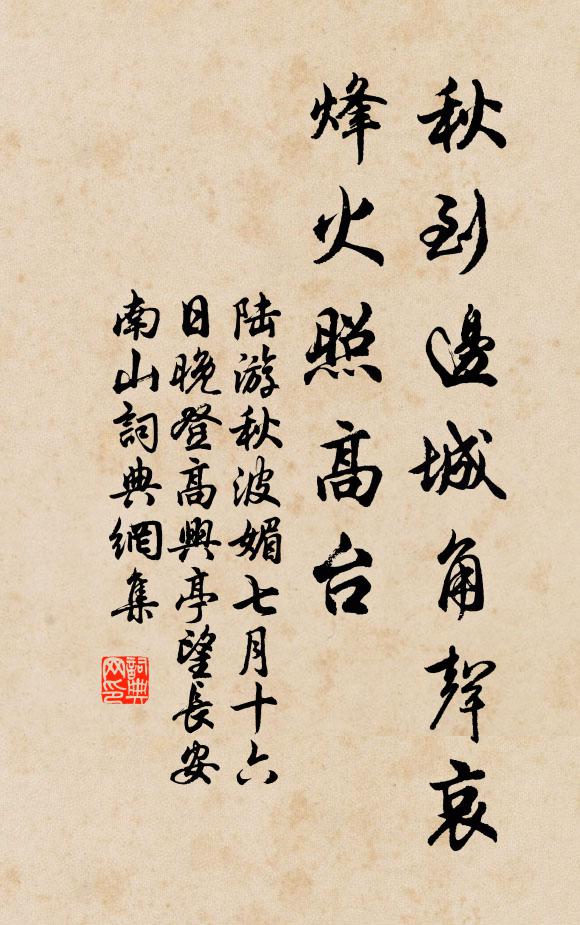 秋到邊城角聲哀
烽火照高台
陆游秋波媚七月十六
日晚登高興亭望長安
南山詞典網集
詞典网印